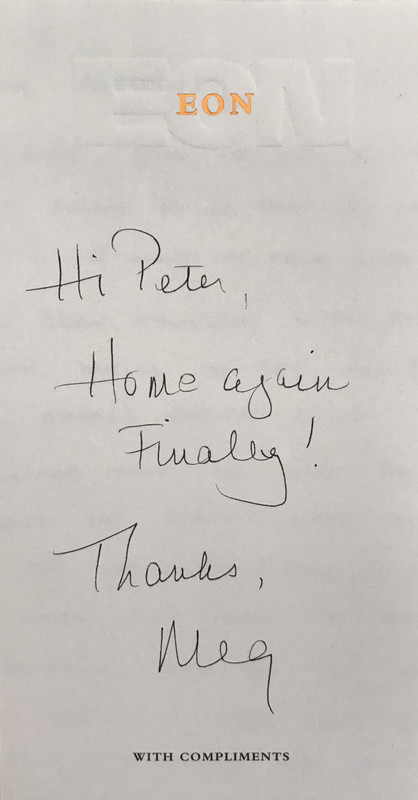 EON
Hi Peter,
Home again
Finally!
Thanks,
Meg
WITH COMPLIMENTS